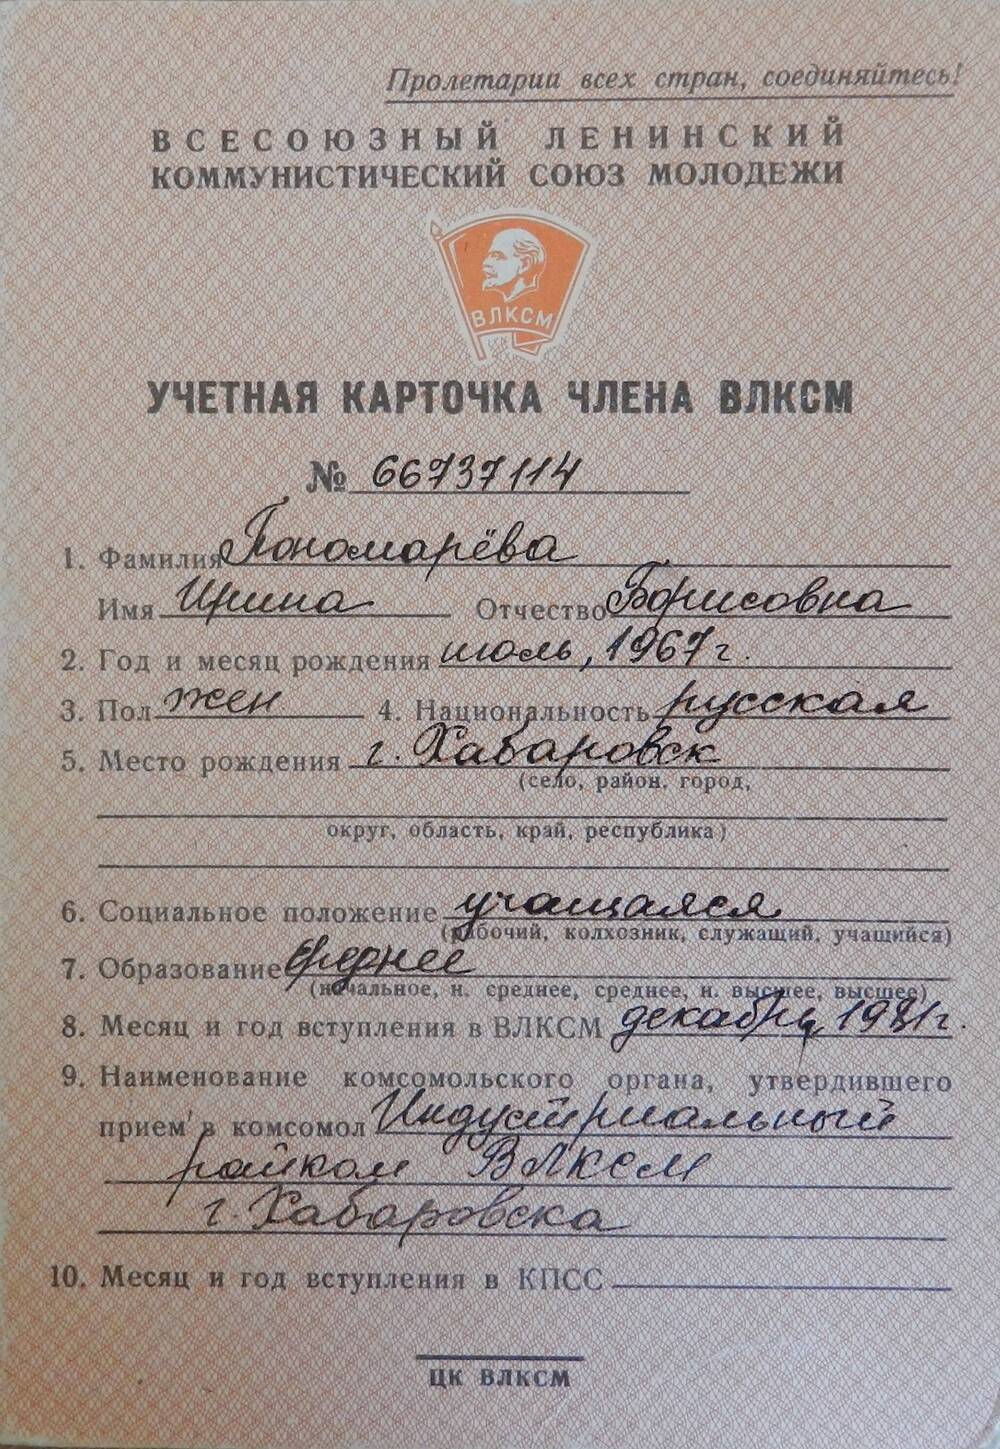 Пролетарии всех стран, соединяйтесь!
ВСЕСОЮЗНЫЙ ЛЕНИНСКИЙ
КОММУНИСТИЧЕСКИЙ СОЮЗ МОЛОДЕЖИ
ВЛКСМ
УЧЕТНАЯ КАРТОЧКА ЧЛЕНА ВЛКСМ
№ 66737114
1. Фамилия Пономарёва
Имя Ирина Отчество Борисовна
2. Год и месяц рождения июль, 1967 г.
3. Пол жен 4. Национальность русская
5. Место рождения г. Хабаровск
(село, район, город,
округ, область, край, республика)
6. Социальное положение учащаяся
(рабочий, колхозник, служащий, учащийся)
7. Образование среднее
(начальное, н. среднее, среднее, н. высшее, высшее)
8. Месяц и год вступления в ВЛКСМ декабрь, 1981г.
9. Наименование комсомольского органа, утвердившего
прием в комсомол Индустриальный
райком ВЛКСМ
г. Хабаровска
10. Месяц и год вступления в КПСС
ЦК ВЛКСМ